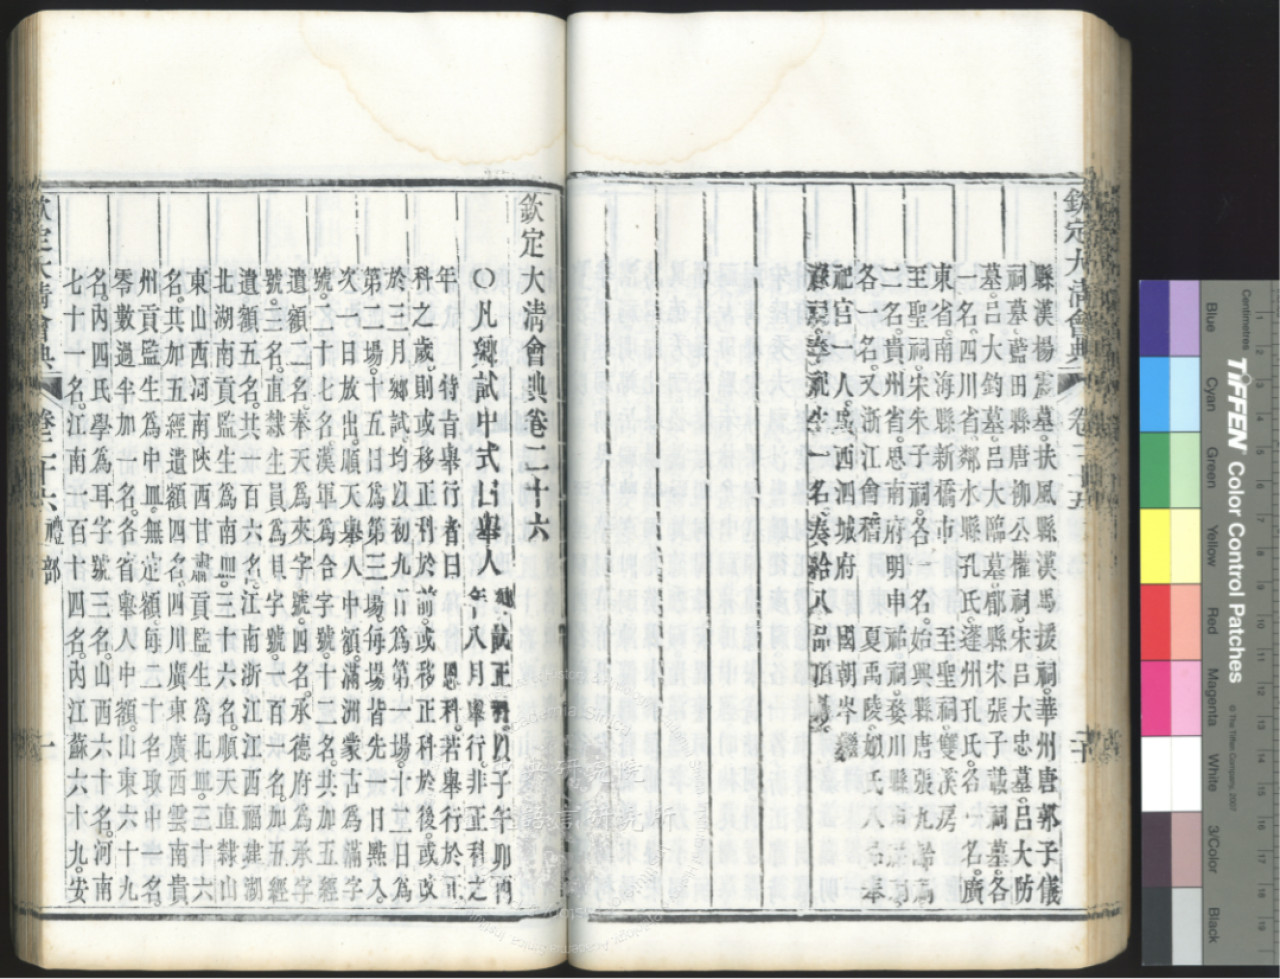 欽定大清會典
卷二十五
縣漢揚震墓。扶風縣漢馬援祠。華州唐郭子儀
祠墓。藍田縣唐柳公權祠。宋呂大忠墓。呂大防
墓。呂大鈞墓。呂大臨墓。郿縣宋張子載祠墓。各
一名。四川省鄰水縣孔氏。蓬州孔氏。各一名。廣
東省南海縣新橋市。至聖祠。雙溪房
至聖祠。宋朱子祠。各一名。始興縣唐張九
二名。貴州省。思南府明申祐祠。婺川縣申祐祠
各一名。又浙江會稽 夏禹陵。姒氏八品奉
祀官一人。廣西泗城府 國朝岑
一名。八品頂
欽定大清會典卷三十六
〇凡鄉試中式曰舉人。鄉試正科。以子午卯酉
年八月舉行。非正科之
年。特旨舉行者曰 恩科。若舉行於正
科之歲。則或移正科於前。或移正科於後。或改
於三月鄉試。均以初九日爲第一場。十二日爲
第二場。十五日爲第三場。每場皆先一日點入。
次日放出。順天舉人中額。滿洲蒙古爲滿字
號。二十七名。漢軍爲合字號。十二名。共加五經
遺額二名。奉天爲夾字號。四名。承德府爲承字
號。名。直隸生員爲貝字號。百名。加五經
遺額五名。共一百六名。江南浙江江西福建湖
北湖南貢監生爲南皿。三十六名。順天直隸山
東山西河南陝西甘肅貢監生爲北皿。三十六
名。共加五經遺額四名。四川廣東廣西雲南貴
州貢監生爲中皿。無定額。每二十名取中一名。
零數過半加一名。各省舉人中額。山東六十九
名。內四氏學爲耳字號三名。山西六十名。河南
七十一名。江南一百十四名。內江蘇六十九。安
欽定大清會典
卷三十六 禮部
一
Centimetres
TIFFEN Color Control Patches
© The Tiffen Company, 2007
Blue
Cyan
Green
Yellow
Red
Magenta
White
3/Color
Black